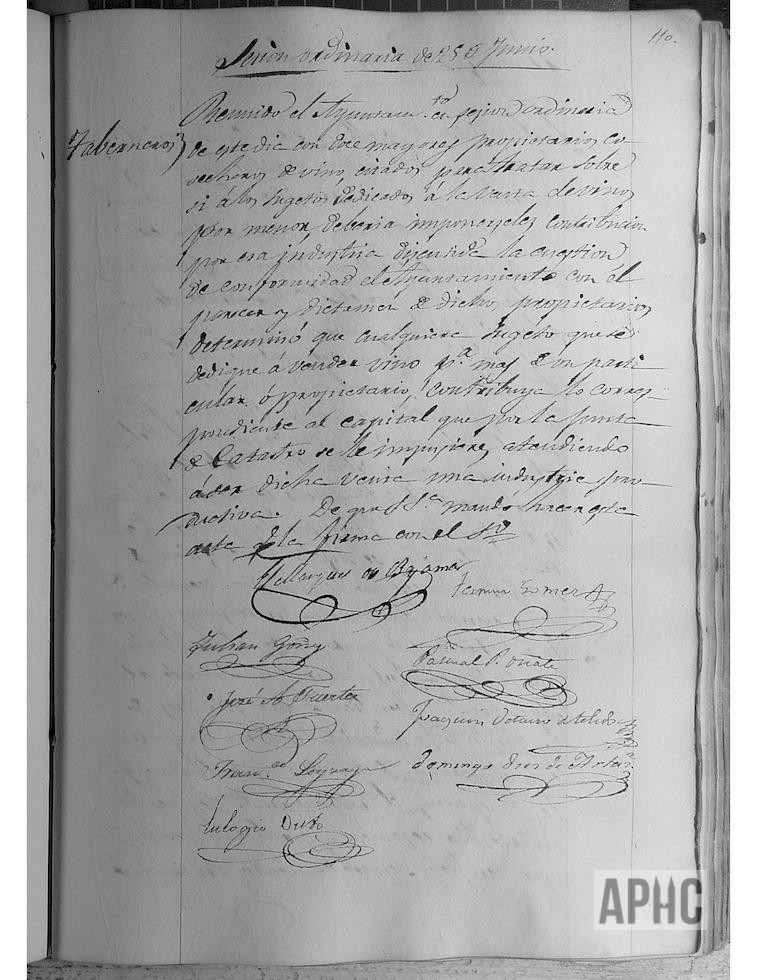 110.
Sesion ordinaria de 25 de Junio.
Taberneros
Reunido el Ayuntam.to en sesion ordinaria
de este dia con doce mayores propietarios co-
secheros de vino, citados para tratar sobre
si á los sugetos dedicados á la venta de vino
por menor, deberia imponerseles contribucion
por esa industria discutida la cuestion
de conformidad el Ayuntamiento con el
parecer y dictamen de dichos propietarios
determinó que cualquiera sugeto que se
dedique á vender vino p.a mas de un parti
cular ó propietario, contribuya lo corres-
pondiente al capital que por la Junta
de Catastro se le impusiere, atendiendo
á ser dicha venta una industria pro-
ductiva. De que S.S.a mandó hacer este
acta q.e la firma con el S.rio
El Marques de
Fermin Gomez
Julian Goñy
Pascual P. Oñate
José A. Fuertes
Joaquin
Fran.co Loynaz
Domingo Diez de
Eulogio
APHC